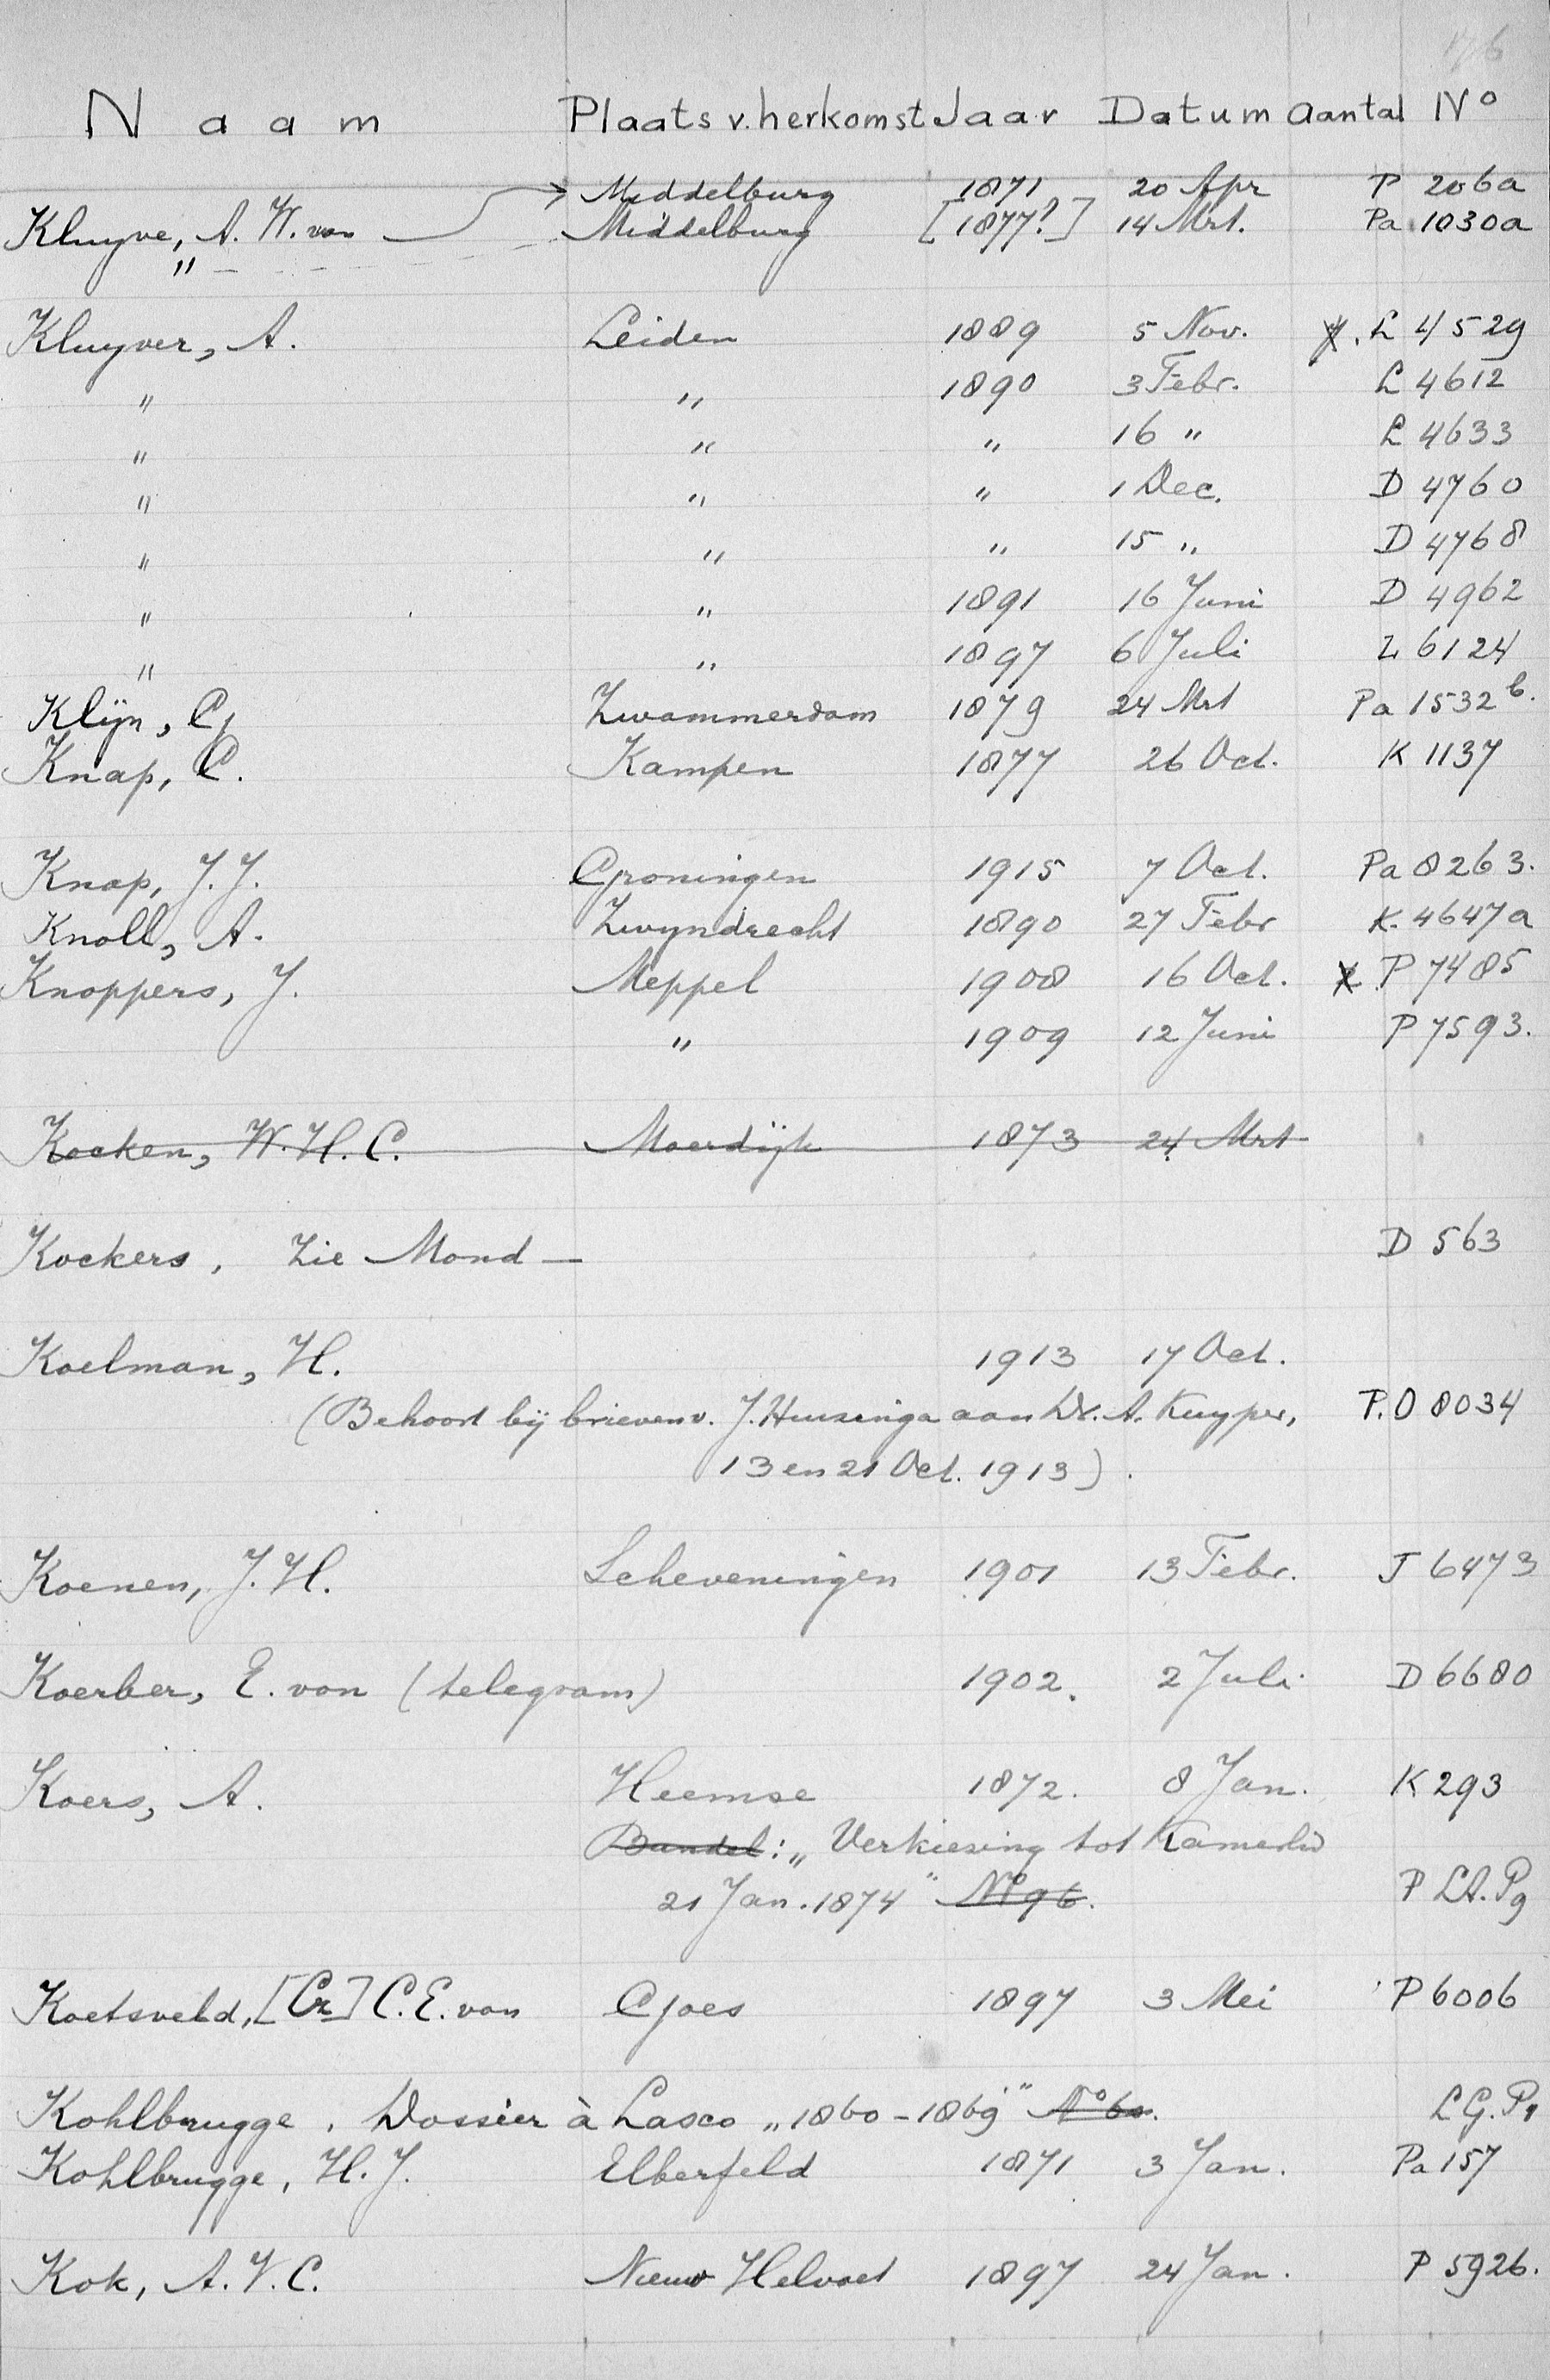 176
Naam Plaats v. herkomst Jaar Datum Aantal No
Middelburg 1871 20 Apr P 206a
Kluyve, A. W. van Middelburg [1877?] 14 Mrt. Pa 1030a
"
Kluyver, A. Leiden 1889 5 Nov. L 4529
" " 1890 3 Febr. L 4612
" " " 16 " L 4633
" " " 1 Dec. D 4760
" " " 15 " D 4768
" " 1891 16 Juni D 4962
" " 1897 6 Juli L 6124
Klijn, G Zwammerdam 1879 24 Mrt Pa 1532 b.
Knap, C. Kampen 1877 26 Oct. K 1137
Knap, J. J. Groningen 1915 7 Oct. Pa 8263.
Knoll, A. Zwyndrecht 1890 27 Febr K. 4647a
Knoppers, J. Meppel 1908 16 Oct. P 7485
" 1909 12 Juni P 7593.
Kocken, W. H. C. Moerdijk 1873 24 Mrt
Kockers, Zie Mond — D 563
Koelman, H. 1913 17 Oct.
(Behoort bij brieven v. J. Huizinga aan Dr. A. Kuyper, P.O 8034
13 en 21 Oct. 1913).
Koenen, J. H. Scheveningen 1901 13 Febr. J 6473
Koerber, E. von (telegram) 1902. 2 Juli D 6680
Koers, A. Heemse 1872. 8 Jan. K 293
Bundel: „Verkiezing tot Kamerlid
21 Jan. 1874" No 96. P LA. P9
Koetsveld, [Cr] C. E. van Goes 1897 3 Mei P 6006
Kohlbrugge. Dossier à Lasco „1860-1869" No 60. LG. P1
Kohlbrugge, H. J. Elberfeld 1871 3 Jan. Pa 157
Kok, A. V. C. Nieuw Helvoet 1897 24 Jan. P 5926.